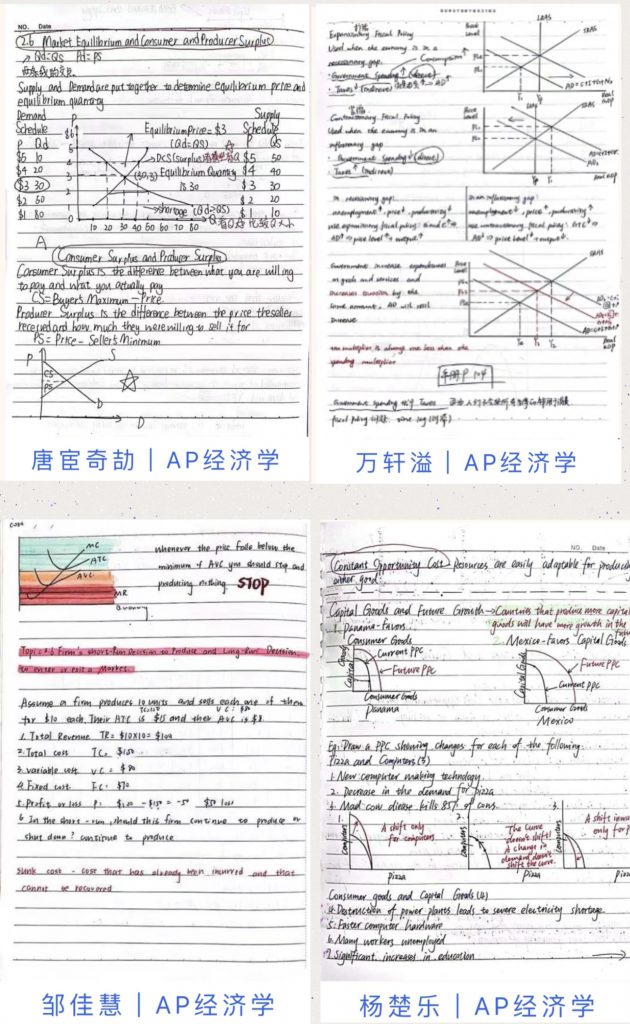 NO. Date
2.6 Market Equilibrium and Consumer and Producer Surplus
→ Qd=QS Pd=PS
两条线的交点
Supply and Demand are put together to determine equilibrium price and
equilibrium quantity
Demand
Schedule
P Qd
$5 10
$4 20
$3 30
$2 50
$1 80
P
$6
5
4
3
2
1
10 20 30 40 50 60 70 80
Q
Equilibrium Price = $3
(Qd=QS)
(surplus)
(30,3) Equilibrium Quantity
is 30
shortage (Qd>QS)
Supply
Schedule
P QS
$5 50
$4 40
$3 30
$2 20
$1 10
Consumer Surplus and Producer Surplus
Consumer Surplus is the difference between what you are willing
to pay and what you actually pay
CS = Buyer's Maximum - Price
Producer Surplus is the difference between the price the seller
received and how much they were willing to sell it for
PS = Price - Seller's Minimum
P
CS
PS
S
D
唐宦奇劼｜AP经济学
Expansionary Fiscal Policy
Used when the economy is in a
recessionary gap.
Government Spending ↑ (direct)
Consumption ↑
Taxes ↓ (indirect)
Price Level
LRAS
SRAS
Contractionary Fiscal Policy
Used when the economy is in an
inflationary gap
Government Spending ↓ (direct)
Taxes ↑ (indirect)
Price Level
SRAS
In recessionary gap:
unemployment ↑, price ↓, productivity ↓
use expansionary fiscal policy:
AD ↑ price level ↑ output ↑
In an inflationary gap:
unemployment ↓, price ↑, productivity ↑
use contractionary fiscal policy:
AD ↓ price level ↓ output ↓
Government increase expenditures
on goods and services and
increases taxation by the
same amount, AD will still
increase
Price Level
SRAS
Real GDP
tax multiplier is always one less than the
spending multiplier
手册 P104
Government spending
Taxes
万轩溢｜AP经济学
Cost
MC
ATC
AVC
MR
Quantity
whenever the price falls below the
minimum of AVC you should stop and
producing nothing STOP
Topic 3.6 Firm's short-Run Decision to Produce and Long-Run Decision
to enter or exit a Market
Assume a firm produces 10 units and sells each one of them
for $10 each. Their ATC is $15 and their AVC is $8.
1. Total Revenue TR= $10×10= $100
2. Total cost TC= $150
3. variable cost VC= $80
4. Fixed cost FC= $70
5. Profit or loss P= $100 - $150 = -50 $50 loss
6. In the short-run, should this firm continue to produce or
shut down? continue to produce
Sunk cost - cost that has already been incurred and that
cannot be recovered
邹佳慧｜AP经济学
NO. Date
Constant Opportunity Cost: Resources are easily adaptable for produc
either good.
Capital Goods and Future Growth → Countries that produce more capital
goods will have more growth in the
1. Panama-Favors
Consumer Goods
Capital Goods
Current PPC
Future PPC
Consumer Goods
Panama
2. Mexico-Favors Capital Goods
Capital Goods
Future PPC
Current PPC
Consumer Goods
Mexico
Eg: Draw a PPC showing changes for each of the following
Pizza and Computers (3)
1. New computer making technology
2. Decrease in the demand for pizza
3. Mad cow disease kills 85% of cows
1.
Computers
A shift only
for computers
Pizza
2.
Computers
The curve
doesn't shift!
A change in
demand doesn't
shift the curve.
Pizza
3.
Computers
A shift inwa
only for p
Pizz
Consumer goods and Capital Goods (4)
4. Destruction of power plants leads to severe electricity shortage
5. Faster computer hardware
6. Many workers unemployed
7. Significant increases in education
杨楚乐｜AP经济学